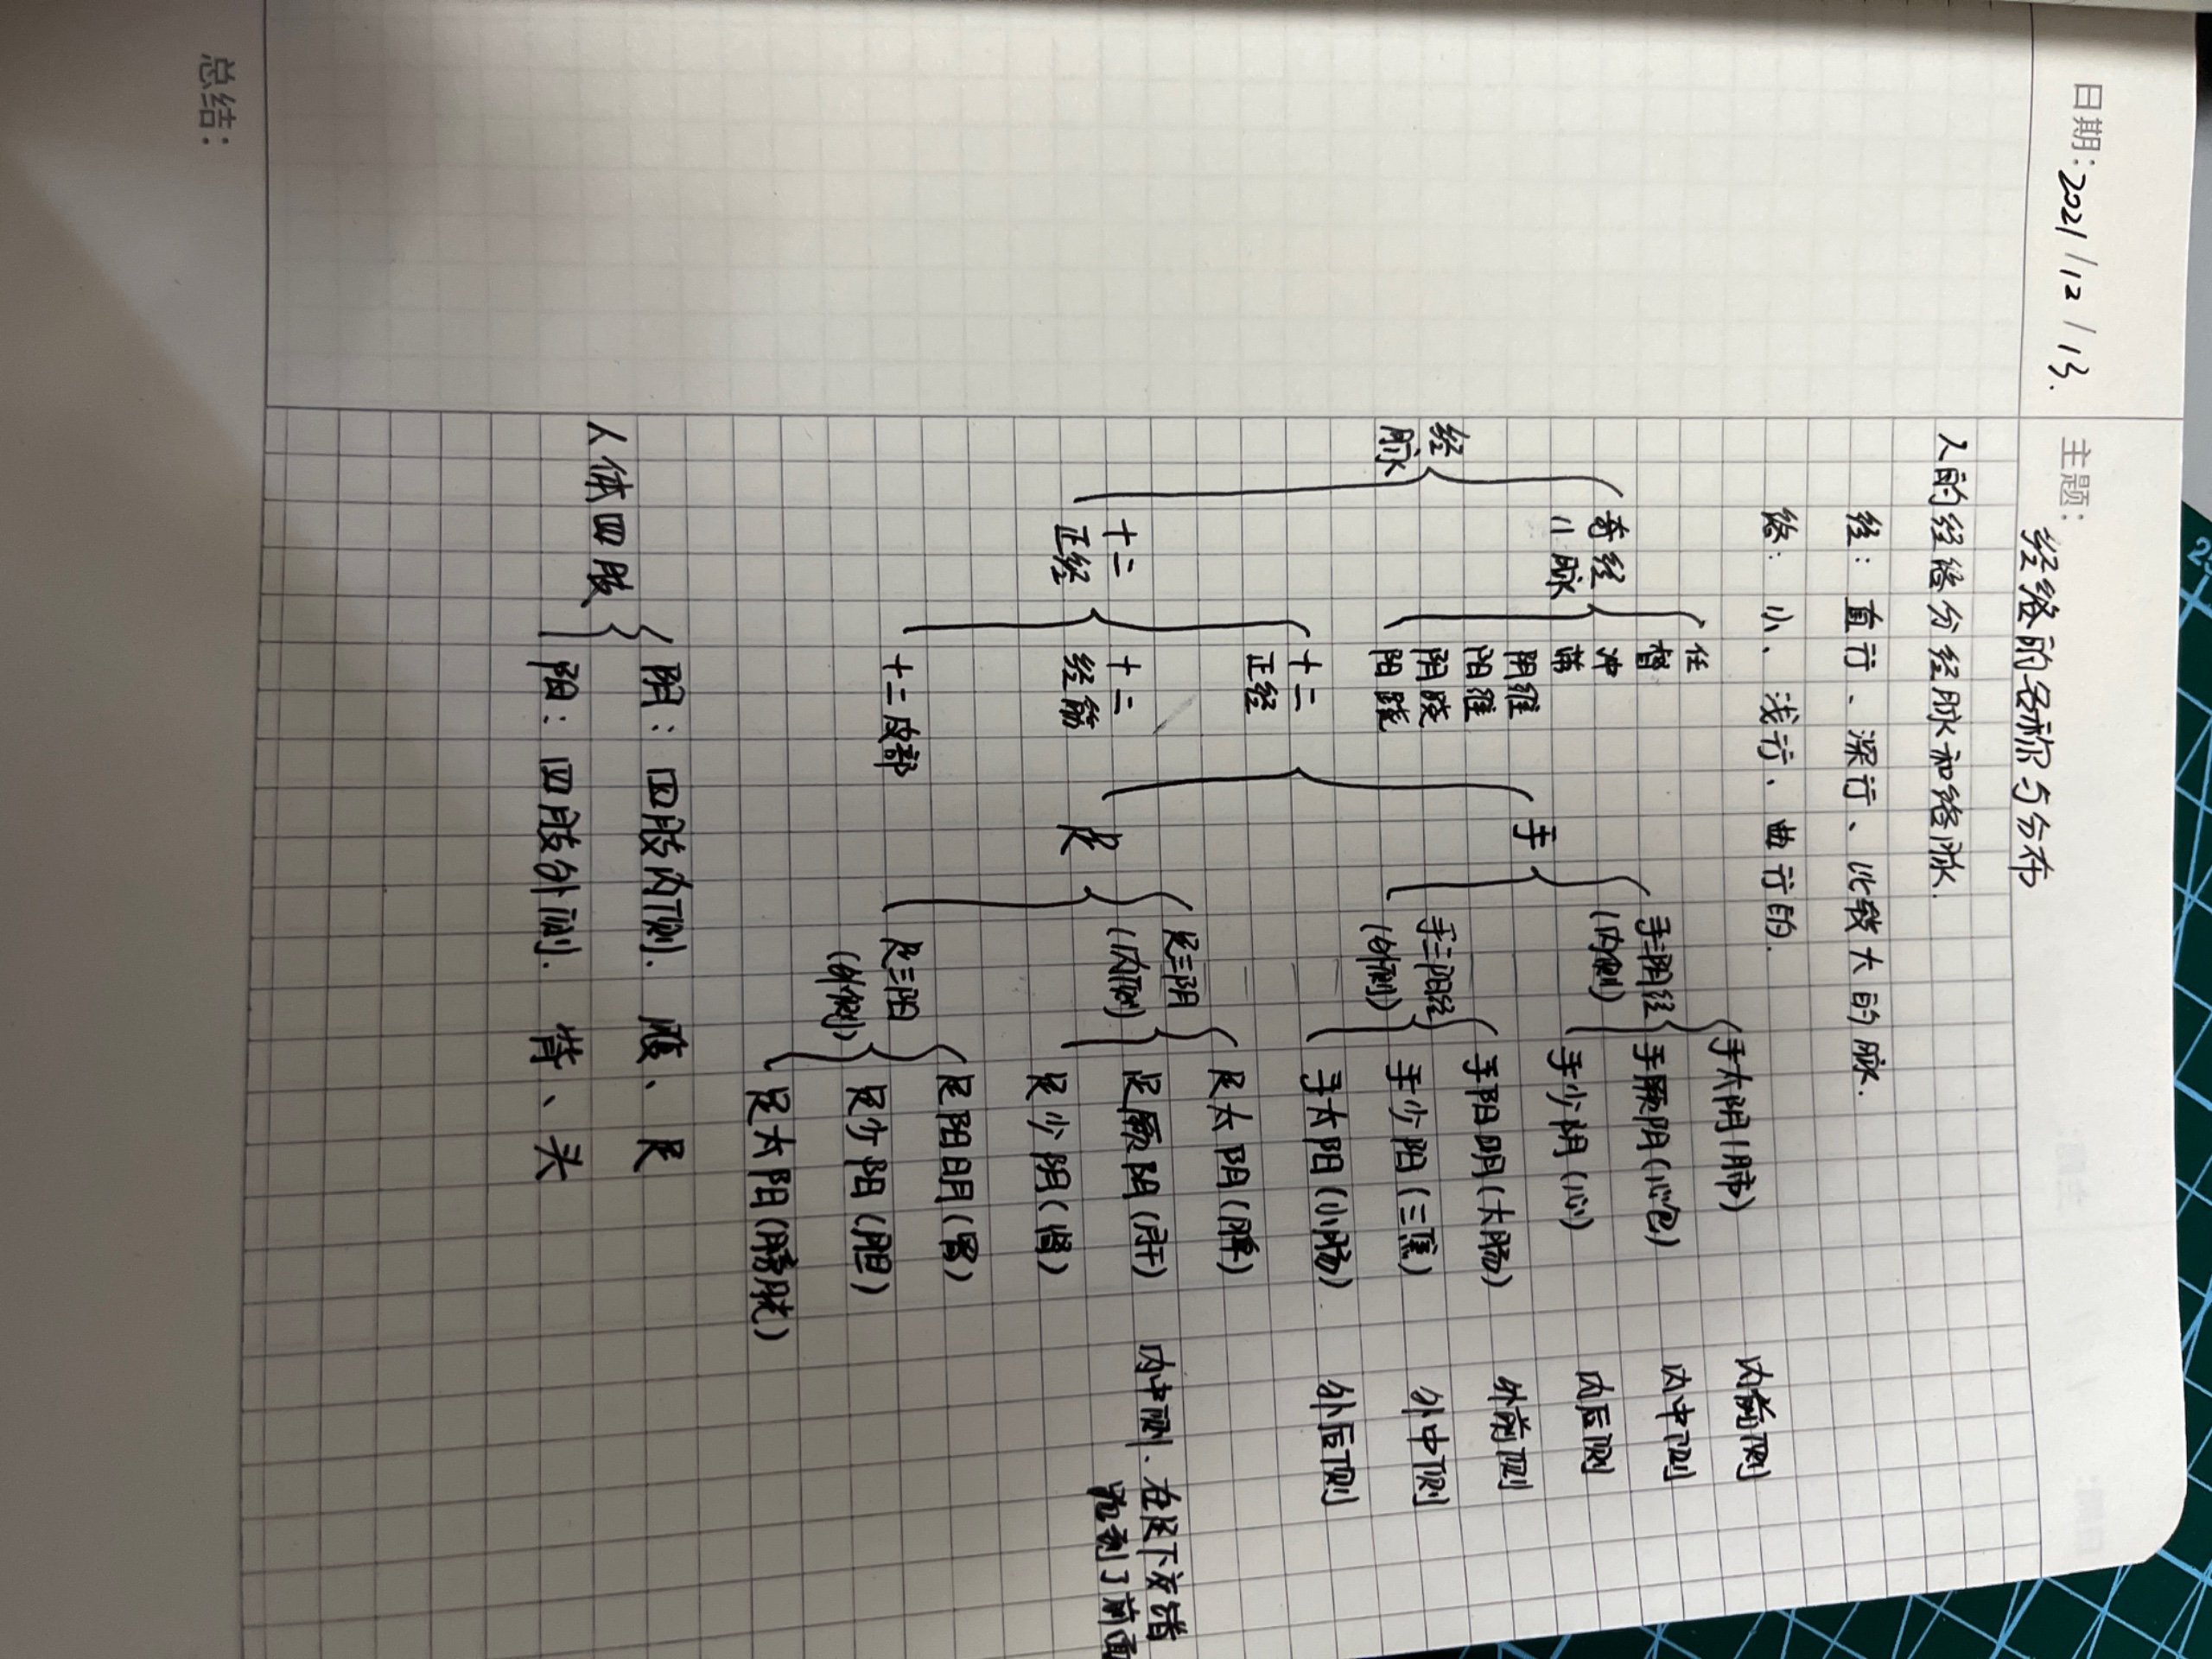 日期：2021/12/13.
主题：经络的名称与分布
人的经络分经脉和络脉.
经：直行、深行、比较大的脉.
络：小、浅行、曲行的.
经脉
奇经八脉
任
督
冲
带
阴维
阳维
阴跷
阳跷
十二正经
十二正经
十二经筋
十二皮部
手
手三阴经(内侧)
手太阴(肺) 内前侧
手厥阴(心包) 内中侧
手少阴(心) 内后侧
手三阳经(外侧)
手阳明(大肠) 外前侧
手少阳(三焦) 外中侧
手太阳(小肠) 外后侧
足
足三阴(内侧)
足太阴(脾)
足厥阴(肝) 内中侧.在区下交错
跑到了前面
足少阴(肾)
足三阳(外侧)
足阳明(胃)
足少阳(胆)
足太阳(膀胱)
人体四肢
阴：四肢内侧. 腹、足
阳：四肢外侧. 背、头
总结：